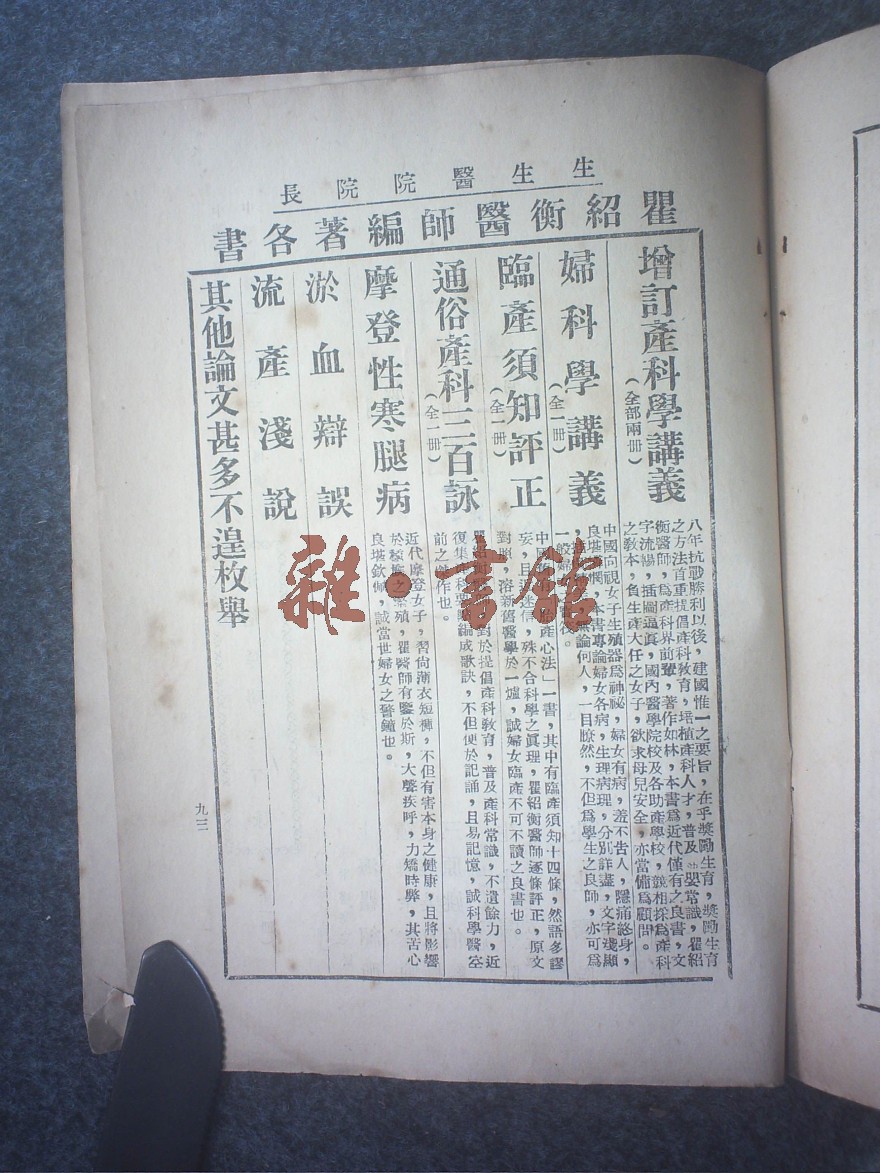 生生醫院院長
瞿紹衡醫師編著各書
增訂產科學講義
(全部兩册)
八年抗戰勝利以後，建國惟一之要旨，在乎獎勵生育，獎勵生育
之方法首重提倡產科教育，培植產科人才，普及 嬰常識，瞿紹
衡醫師，爲產科界前輩，著作如林，本書爲近代僅有之良書，文
字流暢，插圖逼真，國內醫學院校及各助產學校，競相採爲產科
之教本，負生產大任之女子，欲求母兒安全，亦當備爲顧問。
婦科學講義
(全一册)
中國向視女子生殖器爲神祕，婦女有病，羞不告人，隱痛終身，
良堪 憫，本書專論婦女各病，生理病理，分別詳盡，文字淺顯
無論何人，一目瞭然，不但爲學生之良師，亦可爲
一般婦
臨產須知評正
(全一册)
中國 產心法」一書，其中有臨產須知十四條，然語多謬
妄，且 迷信，殊不合科學之眞理，瞿紹衡醫師逐條評正，原文
對照，溶新舊醫學於一爐，誠婦女臨產不可不讀之良書也。
通俗產科三百詠
(全一册)
瞿紹衡 對於提倡產科教育，普及產科常識，不遺餘力，近
復集 科 編成歌訣，不但便於記誦，且易記憶，誠科學醫空
前之傑作也。
摩登性寒腿病
近代摩登女子，習尙薄衣短褲，不但有害本身之健康，且將影響
於 之繁殖，瞿醫師有鑒於斯，大聲疾呼，力矯時弊，其苦心
良堪欽佩，誠當世婦女之警鐘也。
淤血辯誤
流產淺說
其他論文甚多不遑枚舉
九三
雜·書館